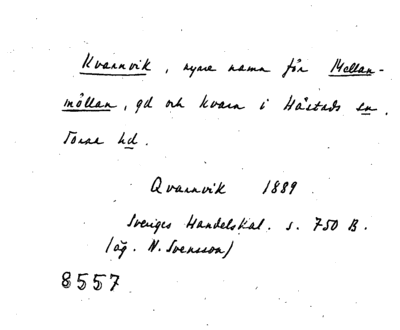 Kvarnvik, nyare namn för Mellan-
möllan, gd och kvarn i Håstads sn.
Torna hd.
Qvarnvik 1889
Sveriges Handelskal. s. 750 B.
(äg. N. Svensson)
8557